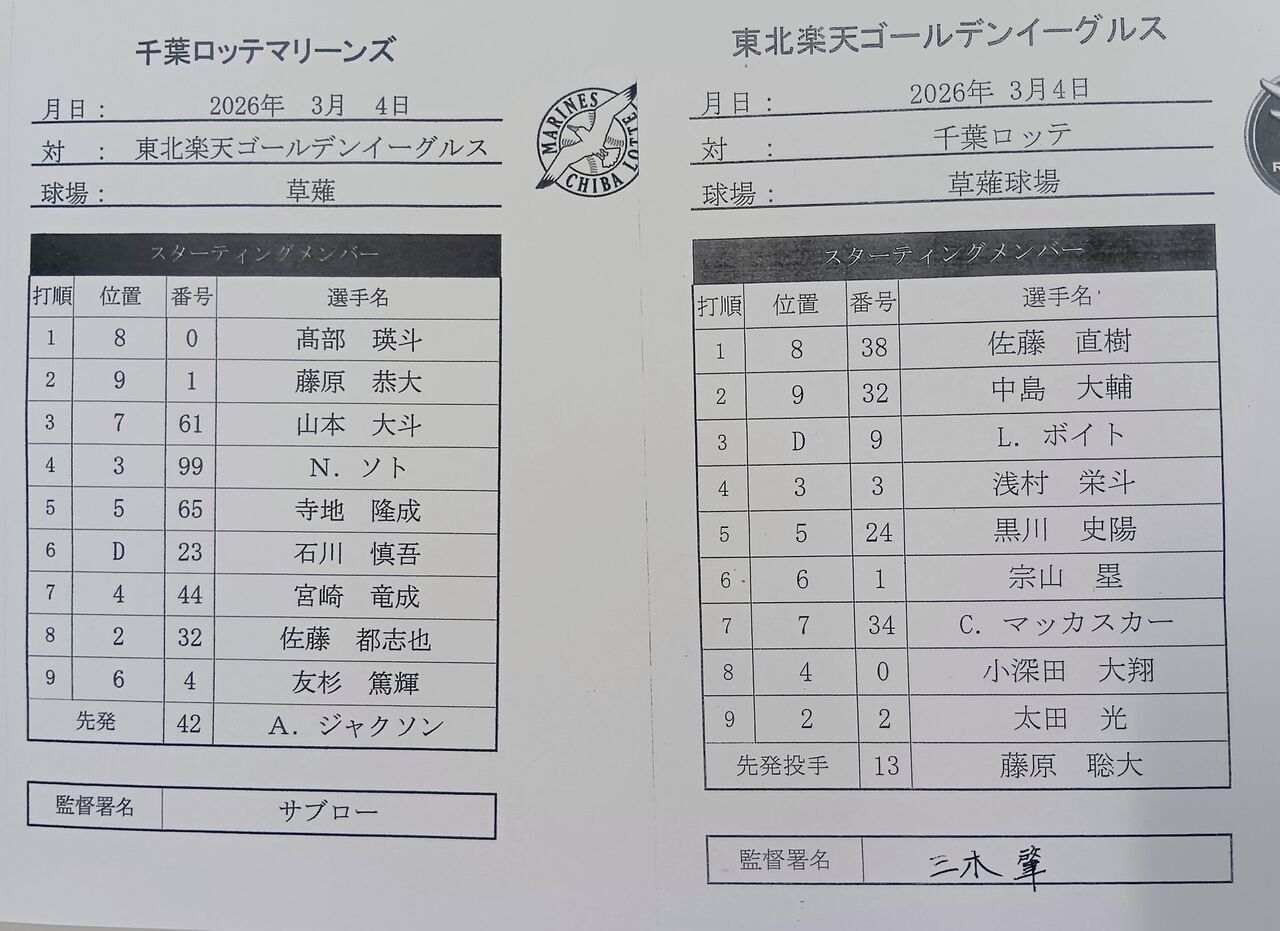 千葉ロッテマリーンズ
月日： 2026年 3月 4日
対 ： 東北楽天ゴールデンイーグルス
球場： 草薙
MARINES
CHIBA LOTTE
スターティングメンバー
打順 位置 番号 選手名
1 8 0 髙部 瑛斗
2 9 1 藤原 恭大
3 7 61 山本 大斗
4 3 99 N．ソト
5 5 65 寺地 隆成
6 D 23 石川 慎吾
7 4 44 宮崎 竜成
8 2 32 佐藤 都志也
9 6 4 友杉 篤輝
先発 42 A．ジャクソン
監督署名 サブロー
東北楽天ゴールデンイーグルス
月日： 2026年 3月4日
対 ： 千葉ロッテ
球場： 草薙球場
R
スターティングメンバー
打順 位置 番号 選手名
1 8 38 佐藤 直樹
2 9 32 中島 大輔
3 D 9 L．ボイト
4 3 3 浅村 栄斗
5 5 24 黒川 史陽
6 6 1 宗山 塁
7 7 34 C．マッカスカー
8 4 0 小深田 大翔
9 2 2 太田 光
先発投手 13 藤原 聡大
監督署名 三木 肇